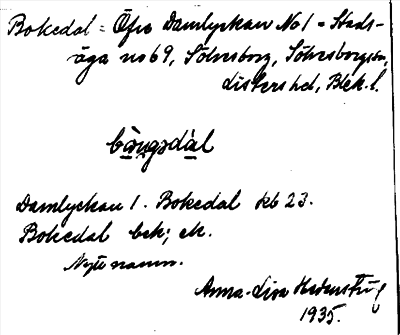 Bokedal = Öfre Damlyckan No 1 = Stads-
äga no 69, Sölvesborg, Sölvesborgs
Listers hd, Blek. l.
Damlyckan 1. Bokedal kb 23.
Bokedal bek; ek.
Nytt namn.
Anna-Lisa
1935.